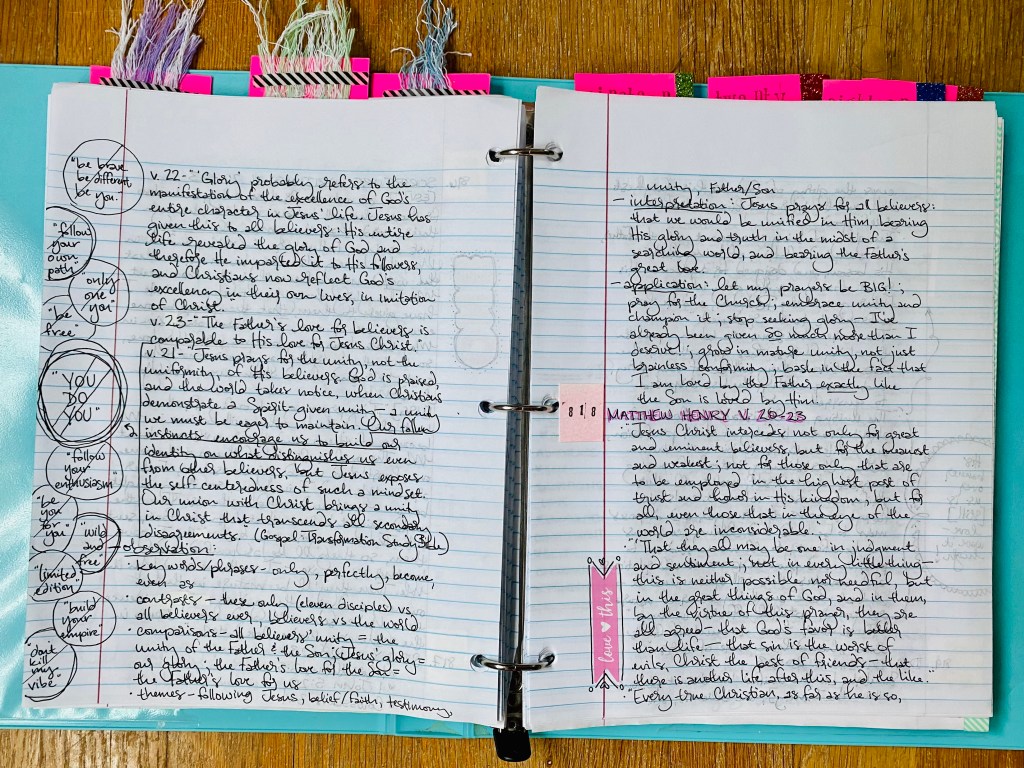 "be brave
be different
be you."
"follow
your
own
path"
"only
one
you"
"be
free"
"YOU
DO
YOU"
"follow
your
enthusiasm"
"be
you
for
you"
"wild
and
free"
"limited
edition"
"build
your
empire"
"don't
kill
my
vibe"
v. 22-"'Glory' probably refers to the
manifestation of the excellence of God's
entire character in Jesus' life. Jesus has
given this to all believers: His entire
life revealed the glory of God and
therefore He imparted it to His followers,
and Christians now reflect God's
excellency in their own lives, in imitation
of Christ.
v. 23-"The Father's love for believers is
comparable to His love for Jesus Christ."
v. 21- "Jesus prays for the unity, not the
uniformity, of His believers. God is praised,
and the world takes notice, when Christians
demonstrate a Spirit-given unity - a unity
we must be eager to maintain. Our fallen
instincts encourage us to build our
identity on what distinguishes us even
from other believers, but Jesus exposes
the self-centeredness of such a mindset.
Our union with Christ brings a unity
in Christ that transcends all secondary
disagreements. (Gospel Transformation Study Bible)
- observation:
· key words/phrases - only, perfectly, become,
even as
· contrasts - these only (eleven disciples) vs
all believers ever, believers vs the world
· comparisons - all believers' unity = the
unity of the Father & the Son; Jesus' glory =
our glory; the Father's love for the Son =
the Father's love for us
· themes - following Jesus, belief/faith, testimony,
unity, Father/Son
- interpretation: Jesus prays for all believers:
that we would be unified in Him, bearing
His glory and truth in the midst of a
searching world, and bearing the Father's
great love.
- application: let my prayers be BIG!;
pray for the Church; embrace unity and
champion it; stop seeking glory - I've
already been given SO much more than I
deserve!; grow in mature unity, not just
brainless conformity; bask in the fact that
I am loved by the Father exactly like
the Son is loved by Him.
818
MATTHEW HENRY V. 20-23
· "Jesus Christ intercedes not only for great
and eminent believers, but for the meanest
and weakest; not for those only that are
to be employed in the highest post of
trust and honor in His kingdom, but for
all, even those that in the eye of the
world are inconsiderable."
· "'That they all may be one' in judgment
and sentiment; not in every little thing -
this is neither possible nor needful, but
in the great things of God, and in them,
by the virtue of this prayer, they are
all agreed - that God's favor is better
than life - that sin is the worst of
evils, Christ the best of friends - that
there is another life after this, and the like."
· "Every true Christian, as far as he is so,
love this